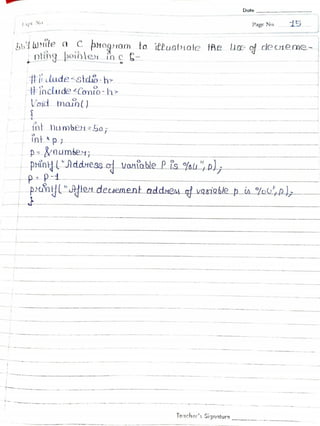 Date
Expt. No.
Page No. 15
Write a C program to illustrate the use of decreme-
nting pointer in c :-
# include<stdio.h>
# include<conio.h>
Void main()
{
int number=50;
int *p;
p= &number;
printf("Address of variable P is %u",p);
p= p-1
printf("After decrement address of variable p is %u",p);
}
Teacher's Signature